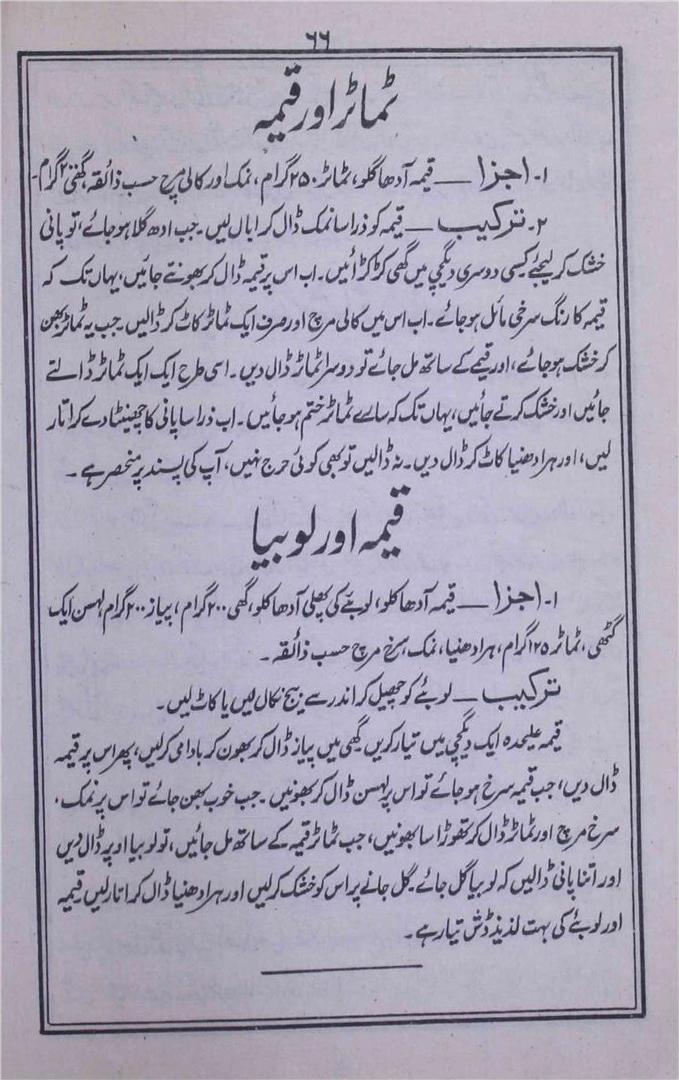 ۶۶
ٹماٹر اور قیمہ
۱۔ اجزا ــ قیمہ آدھا کلو، ٹماٹر ۲۵۰ گرام، نمک اور کالی مرچ حسب ذائقہ، گھی ۲۰۰ گرام۔
۲۔ ترکیب ــ قیمہ کو ذرا سا نمک ڈال کر ابال لیں۔ جب ادھ گلا ہو جائے، تو پانی
خشک کر لیجئے کسی دوسری دیگچی میں گھی کڑکڑائیں۔ اب اس پر قیمہ ڈال کر بھونتے جائیں، یہاں تک کہ
قیمہ کا رنگ سرخی مائل ہو جائے۔ اب اس میں کالی مرچ اور صرف ایک ٹماٹر کاٹ کر ڈالیں۔ جب یہ ٹماٹر بھن
کر خشک ہو جائے، اور قیمے کے ساتھ مل جائے تو دوسرا ٹماٹر ڈال دیں۔ اسی طرح ایک ایک ٹماٹر ڈالتے
جائیں اور خشک کرتے جائیں، یہاں تک کہ سارے ٹماٹر ختم ہو جائیں۔ اب ذرا سا پانی کا چھینٹا دے کر اتار
لیں، اور ہرا دھنیا کاٹ کر ڈال دیں۔ نہ ڈالیں تو بھی کوئی حرج نہیں، آپ کی پسند پر منحصر ہے۔
قیمہ اور لوبیا
۱۔ اجزا ــ قیمہ آدھا کلو، لوبئے کی پھلی آدھا کلو، گھی ۲۰۰ گرام، پیاز ۲۰۰ گرام، لہسن ایک
گٹھی، ٹماٹر ۱۲۵ گرام، ہرا دھنیا، نمک، سرخ مرچ حسب ذائقہ۔
ترکیب ــ لوبئے کو چھیل کر اندر سے بیج نکال لیں یا کاٹ لیں۔
قیمہ علیحدہ ایک دیگچی میں تیار کریں گھی میں پیاز ڈال کر بھون کر بادامی کر لیں، پھر اس پر قیمہ
ڈال دیں، جب قیمہ سرخ ہو جائے تو اس پر لہسن ڈال کر بھونیں۔ جب خوب بھن جائے تو اس پر نمک،
سرخ مرچ اور ٹماٹر ڈال کر تھوڑا سا بھونیں، جب ٹماٹر قیمہ کے ساتھ مل جائیں، تو لوبیا اوپر ڈال دیں
اور اتنا پانی ڈالیں کہ لوبیا گل جائے۔ گل جانے پر اس کو خشک کر لیں اور ہرا دھنیا ڈال کر اتار لیں قیمہ
اور لوبئے کی بہت لذیذ ڈش تیار ہے۔